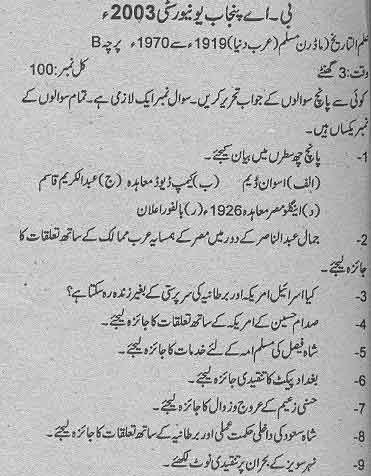 بی۔اے پنجاب یونیورسٹی 2003ء
علم التاریخ (ماڈرن مسلم (عرب دنیا) 1919ء سے 1970ء پرچہ B
وقت: 3 گھنٹے کل نمبر: 100
کوئی سے پانچ سوالوں کے جواب تحریر کریں۔ سوال نمبر ایک لازمی ہے۔ تمام سوالوں کے
نمبر یکساں ہیں۔
1- پانچ چھ سطروں میں بیان کیجئے۔
(الف) اسوان ڈیم (ب) کیمپ ڈیوڈ معاہدہ (ج) عبدالکریم قاسم
(د) اینگلو مصر معاہدہ 1926ء (ر) بالفور اعلان
2- جمال عبدالناصر کے دور میں مصر کے ہمسایہ عرب ممالک کے ساتھ تعلقات کا
جائزہ لیجئے۔
3- کیا اسرائیل امریکہ اور برطانیہ کی سرپرستی کے بغیر زندہ رہ سکتا ہے؟
4- صدام حسین کے امریکہ کے ساتھ تعلقات کا جائزہ لیجئے۔
5- شاہ فیصل کی مسلم امہ کے لئے خدمات کا جائزہ لیجئے۔
6- بغداد پیکٹ کا تنقیدی جائزہ لیجئے۔
7- حسنی زعیم کے عروج و زوال کا جائزہ لیجئے۔
8- شاہ سعود کی داخلی حکمت عملی اور برطانیہ کے ساتھ تعلقات کا جائزہ لیجئے۔
9- نہر سویز کے بحران پر تنقیدی نوٹ لکھئے۔